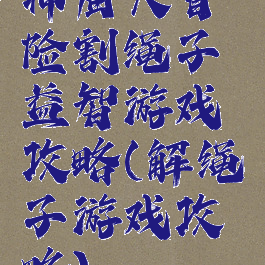 险割绳子
益智游戏
攻略(解绳
子游戏攻
略)